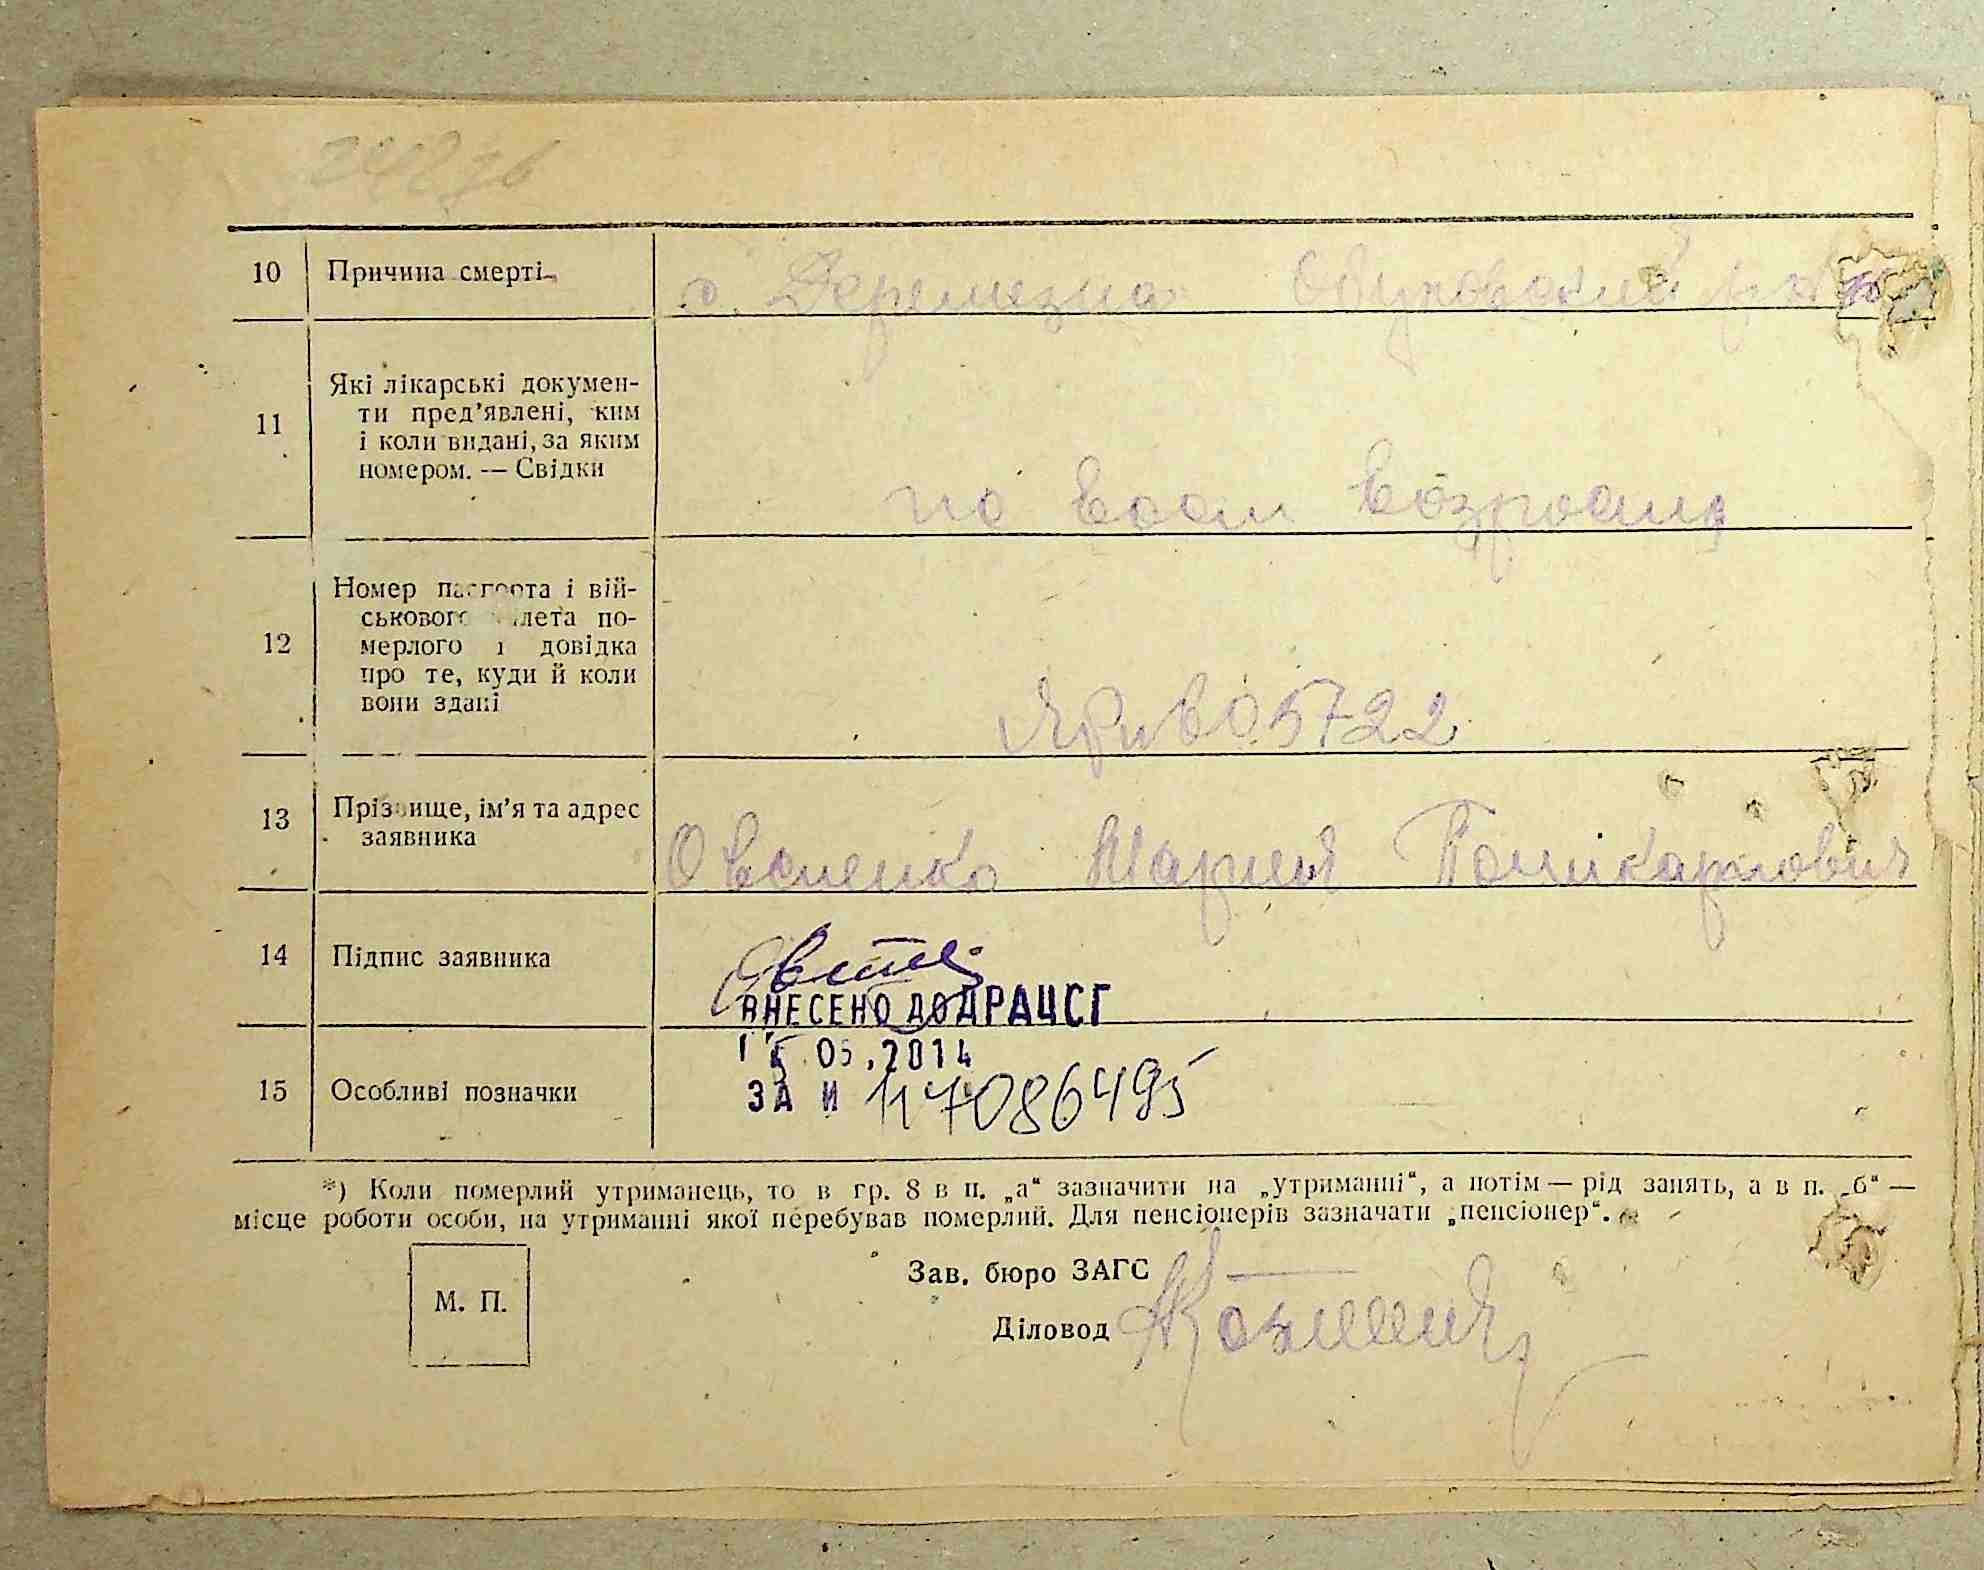 10 Причина смерті с. Деремезна Обуховский р-н
11 Які лікарські докумен-
ти пред’явлені, ким
і коли видані, за яким
номером. — Свідки по всем возрасте
12 Номер паспорта і вій-
ськового білета по-
мерлого і довідка
про те, куди й коли
вони здані 05722
13 Прізвище, ім’я та адрес
заявника Овсиенко Мария Поликарпович
14 Підпис заявника
ВНЕСЕНО ДО ДРАЦСГ
05.2014
15 Особливі позначки ЗА И 117086495
*) Коли померлий утриманець, то в гр. 8 в п. „а“ зазначити на „утриманні“, а потім — рід занять, а в п. „б“ —
місце роботи особи, на утриманні якої перебував померлий. Для пенсіонерів зазначати „пенсіонер“.
Зав. бюро ЗАГС
М. П.
Діловод